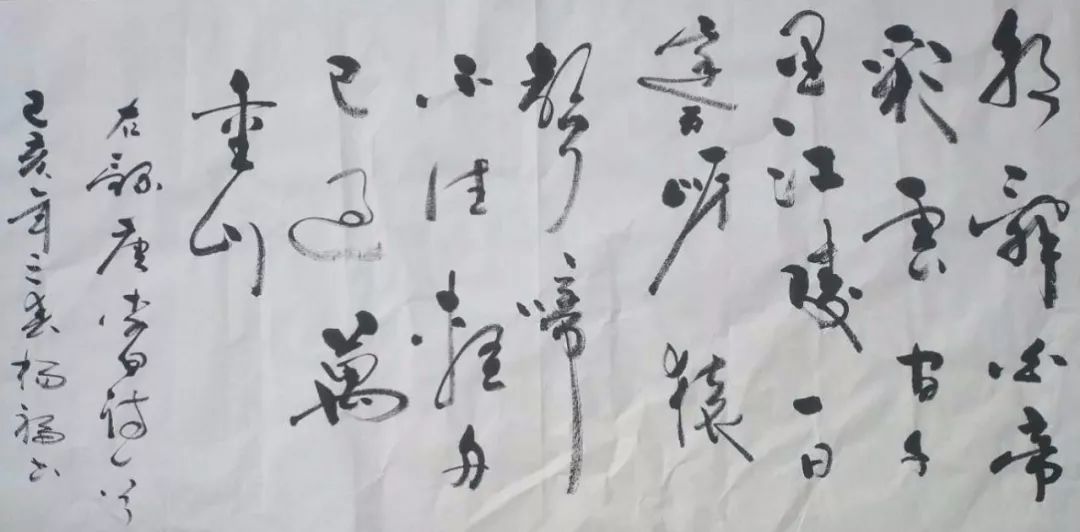 朝辭白帝
彩雲間千
里江陵一日
還兩岸猿
聲啼
不住輕舟
已過萬
重山
右録唐李白詩一首
己亥年之春楊福書